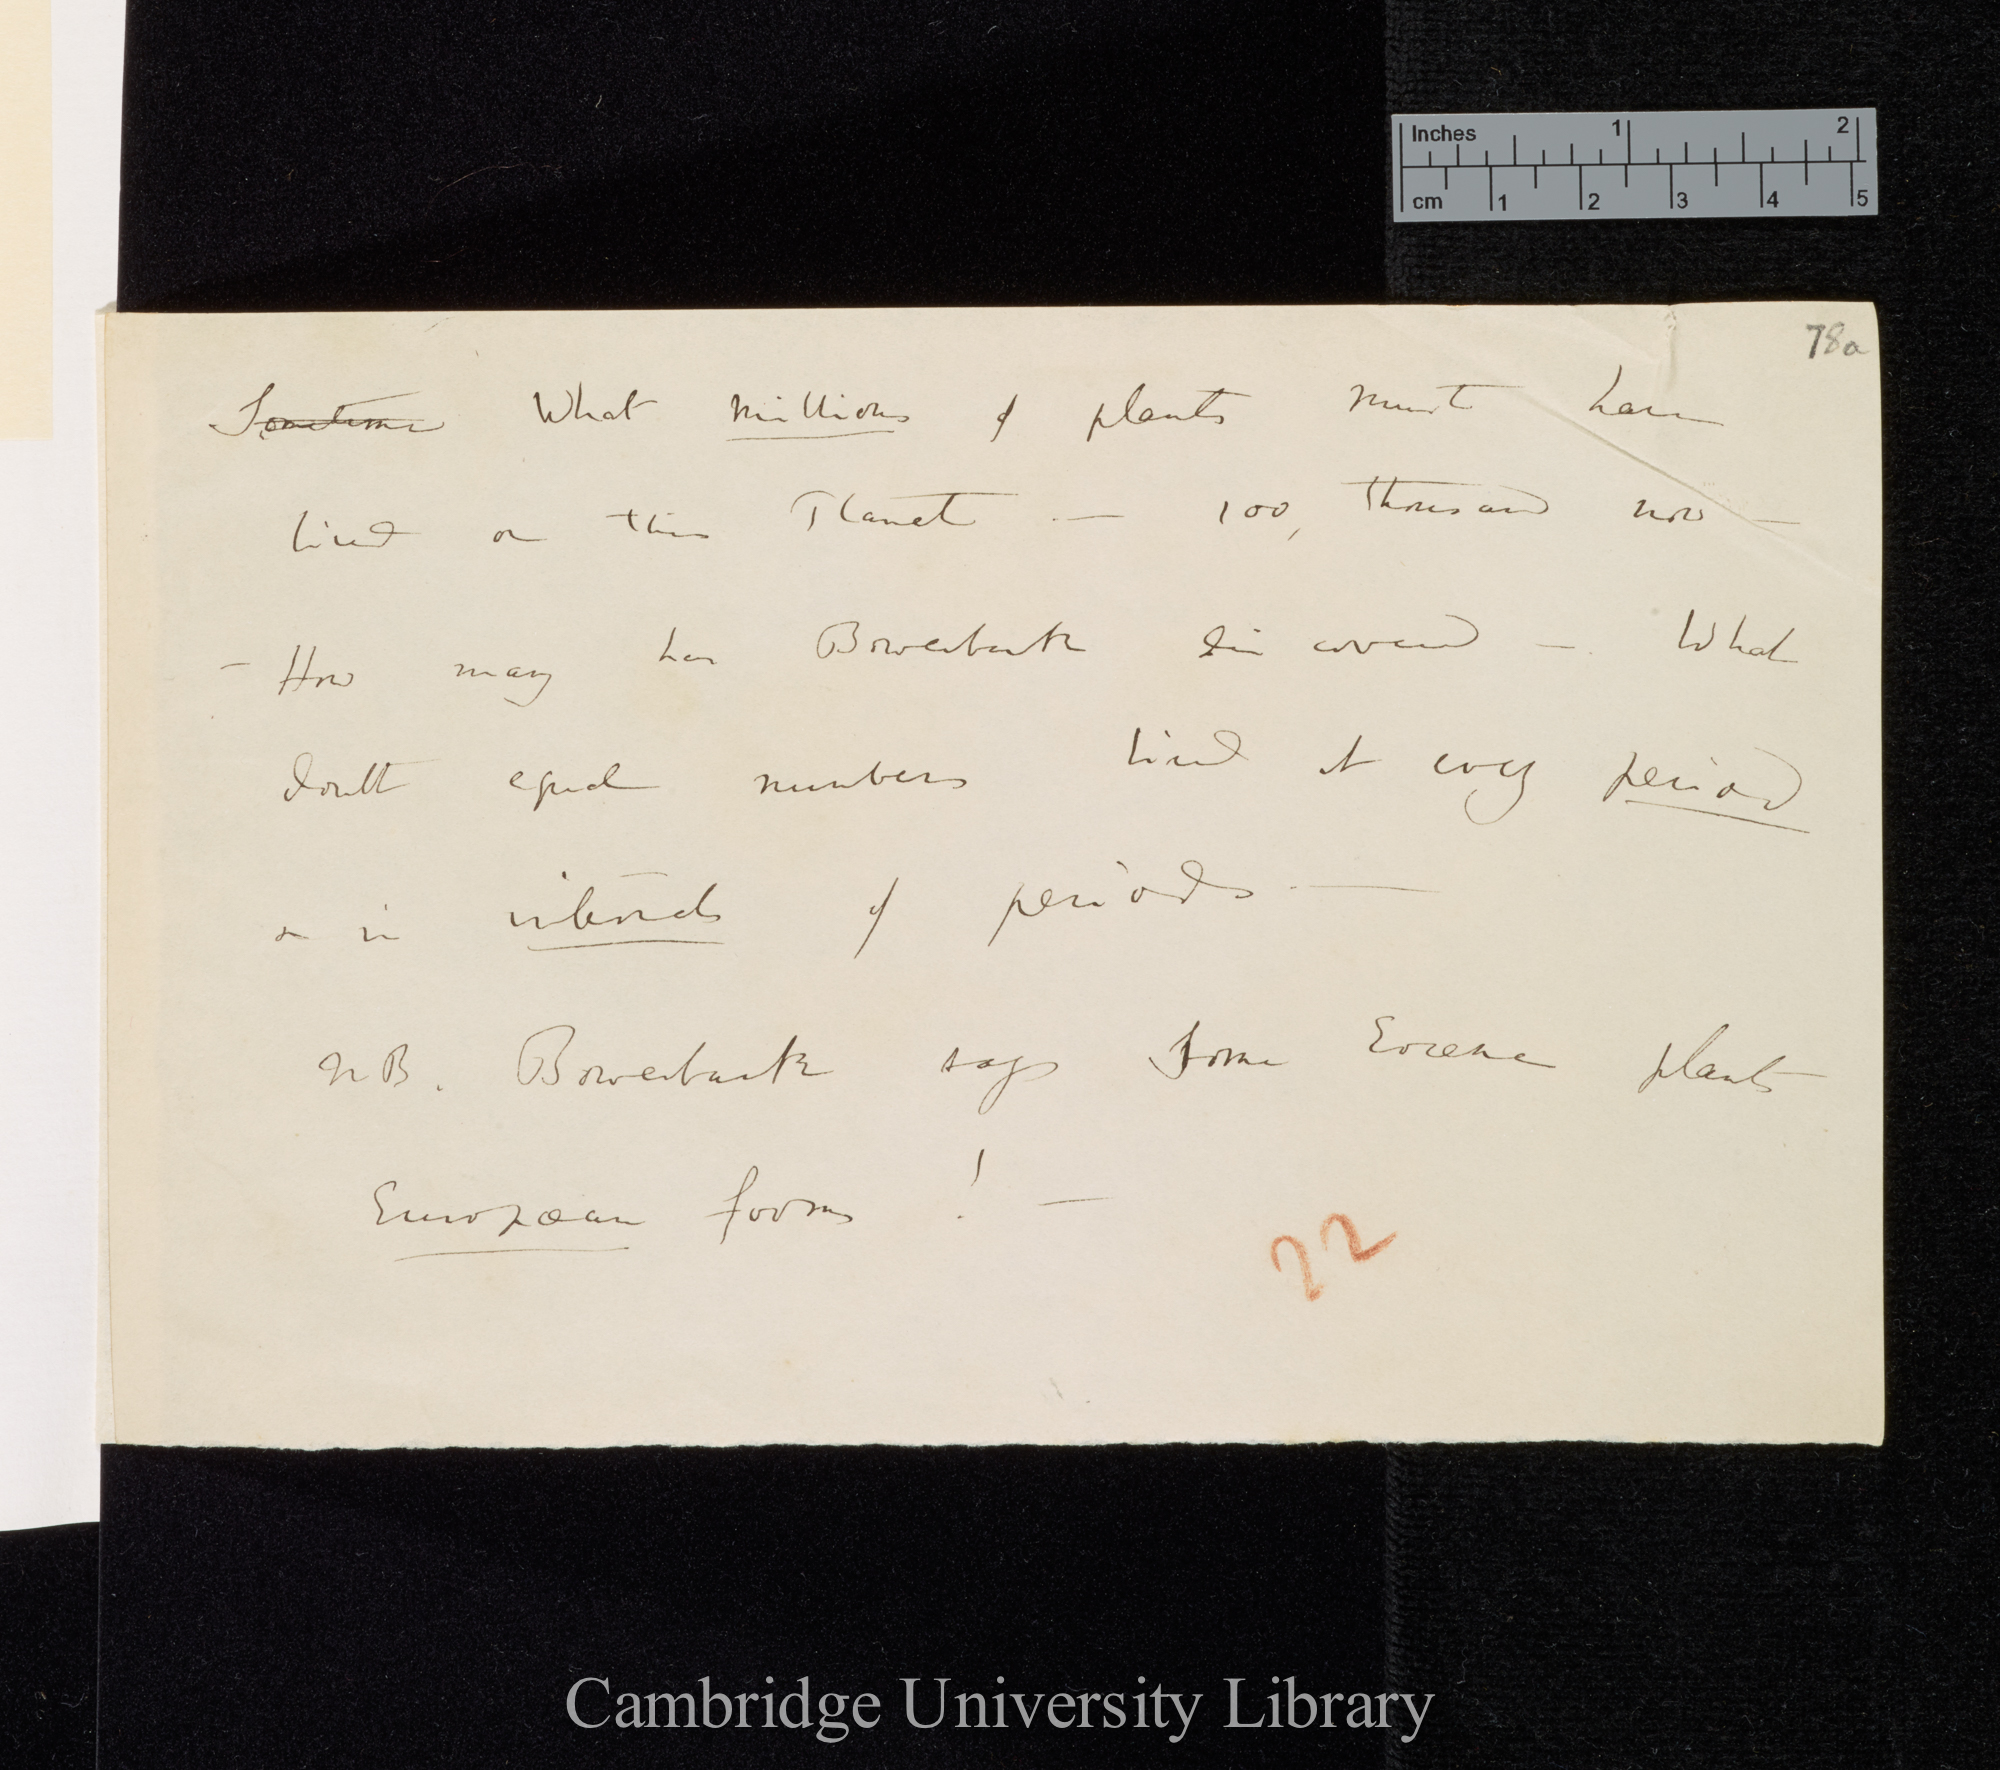 Inches 1 2
cm 1 2 3 4 5
78a
Sometime What millions of plants must have
lived on this Planet — 100, thousand now —
— How many has Bowerbank discovered —. What
doubt equal numbers lived at every period
& in intervals of periods —
NB. Bowerbank says some Eocene plants
European forms! —
22
Cambridge University Library